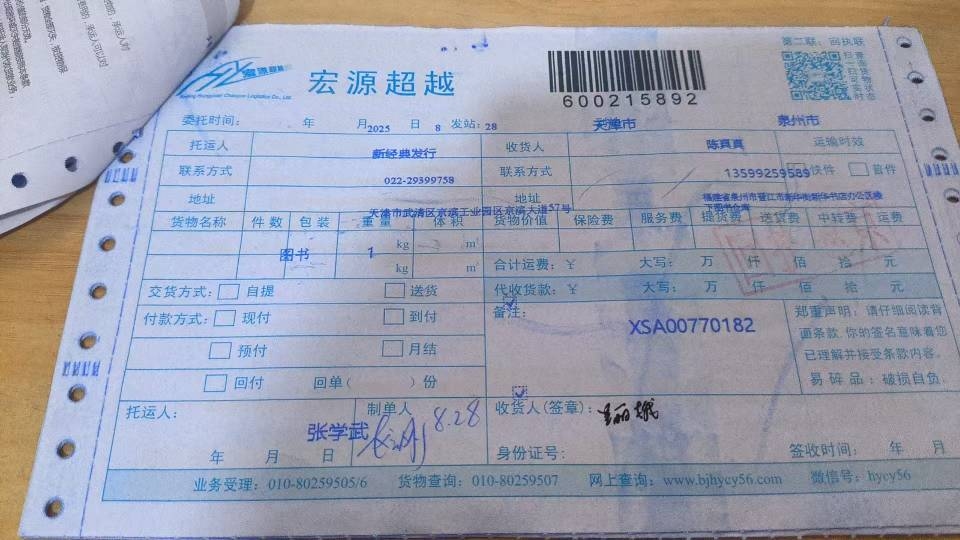 第二联：回执联
宏源超越
600215892
扫 查
委托时间： 年 月 2025 日 8 发站：28 天津市 泉州市
托运人 新经典发行 收货人 陈真真 运输时效
联系方式 022-29399758 联系方式 13599259589 快件 普件
地址 天津市武清区京滨工业园区京滨大道57号 地址
货物名称 件数 包装 重量 体积 货物价值 保险费 服务费 提货费 送货费 中转费 运费
kg m³
图书 1 kg m³ 合计运费：￥ 大写： 万 仟 佰 拾 元
交货方式： 自提 送货 代收货款：￥ 大写： 万 仟 佰 拾 元
付款方式： 现付 到付 备注： XSA00770182
郑重声明，请仔细阅读背
面条款，你的签名意味着您
已理解并接受条款内容。
易碎品：破损自负。
预付 月结
回付 回单（ ）份
托运人： 张学武 制单人 8.28 收货人(签章)：
年 月 日 身份证号： 签收时间： 年 月
业务受理：010-80259505/6 货物查询：010-80259507 网上查询：www.bjhycy56.com 微信号：hycy56